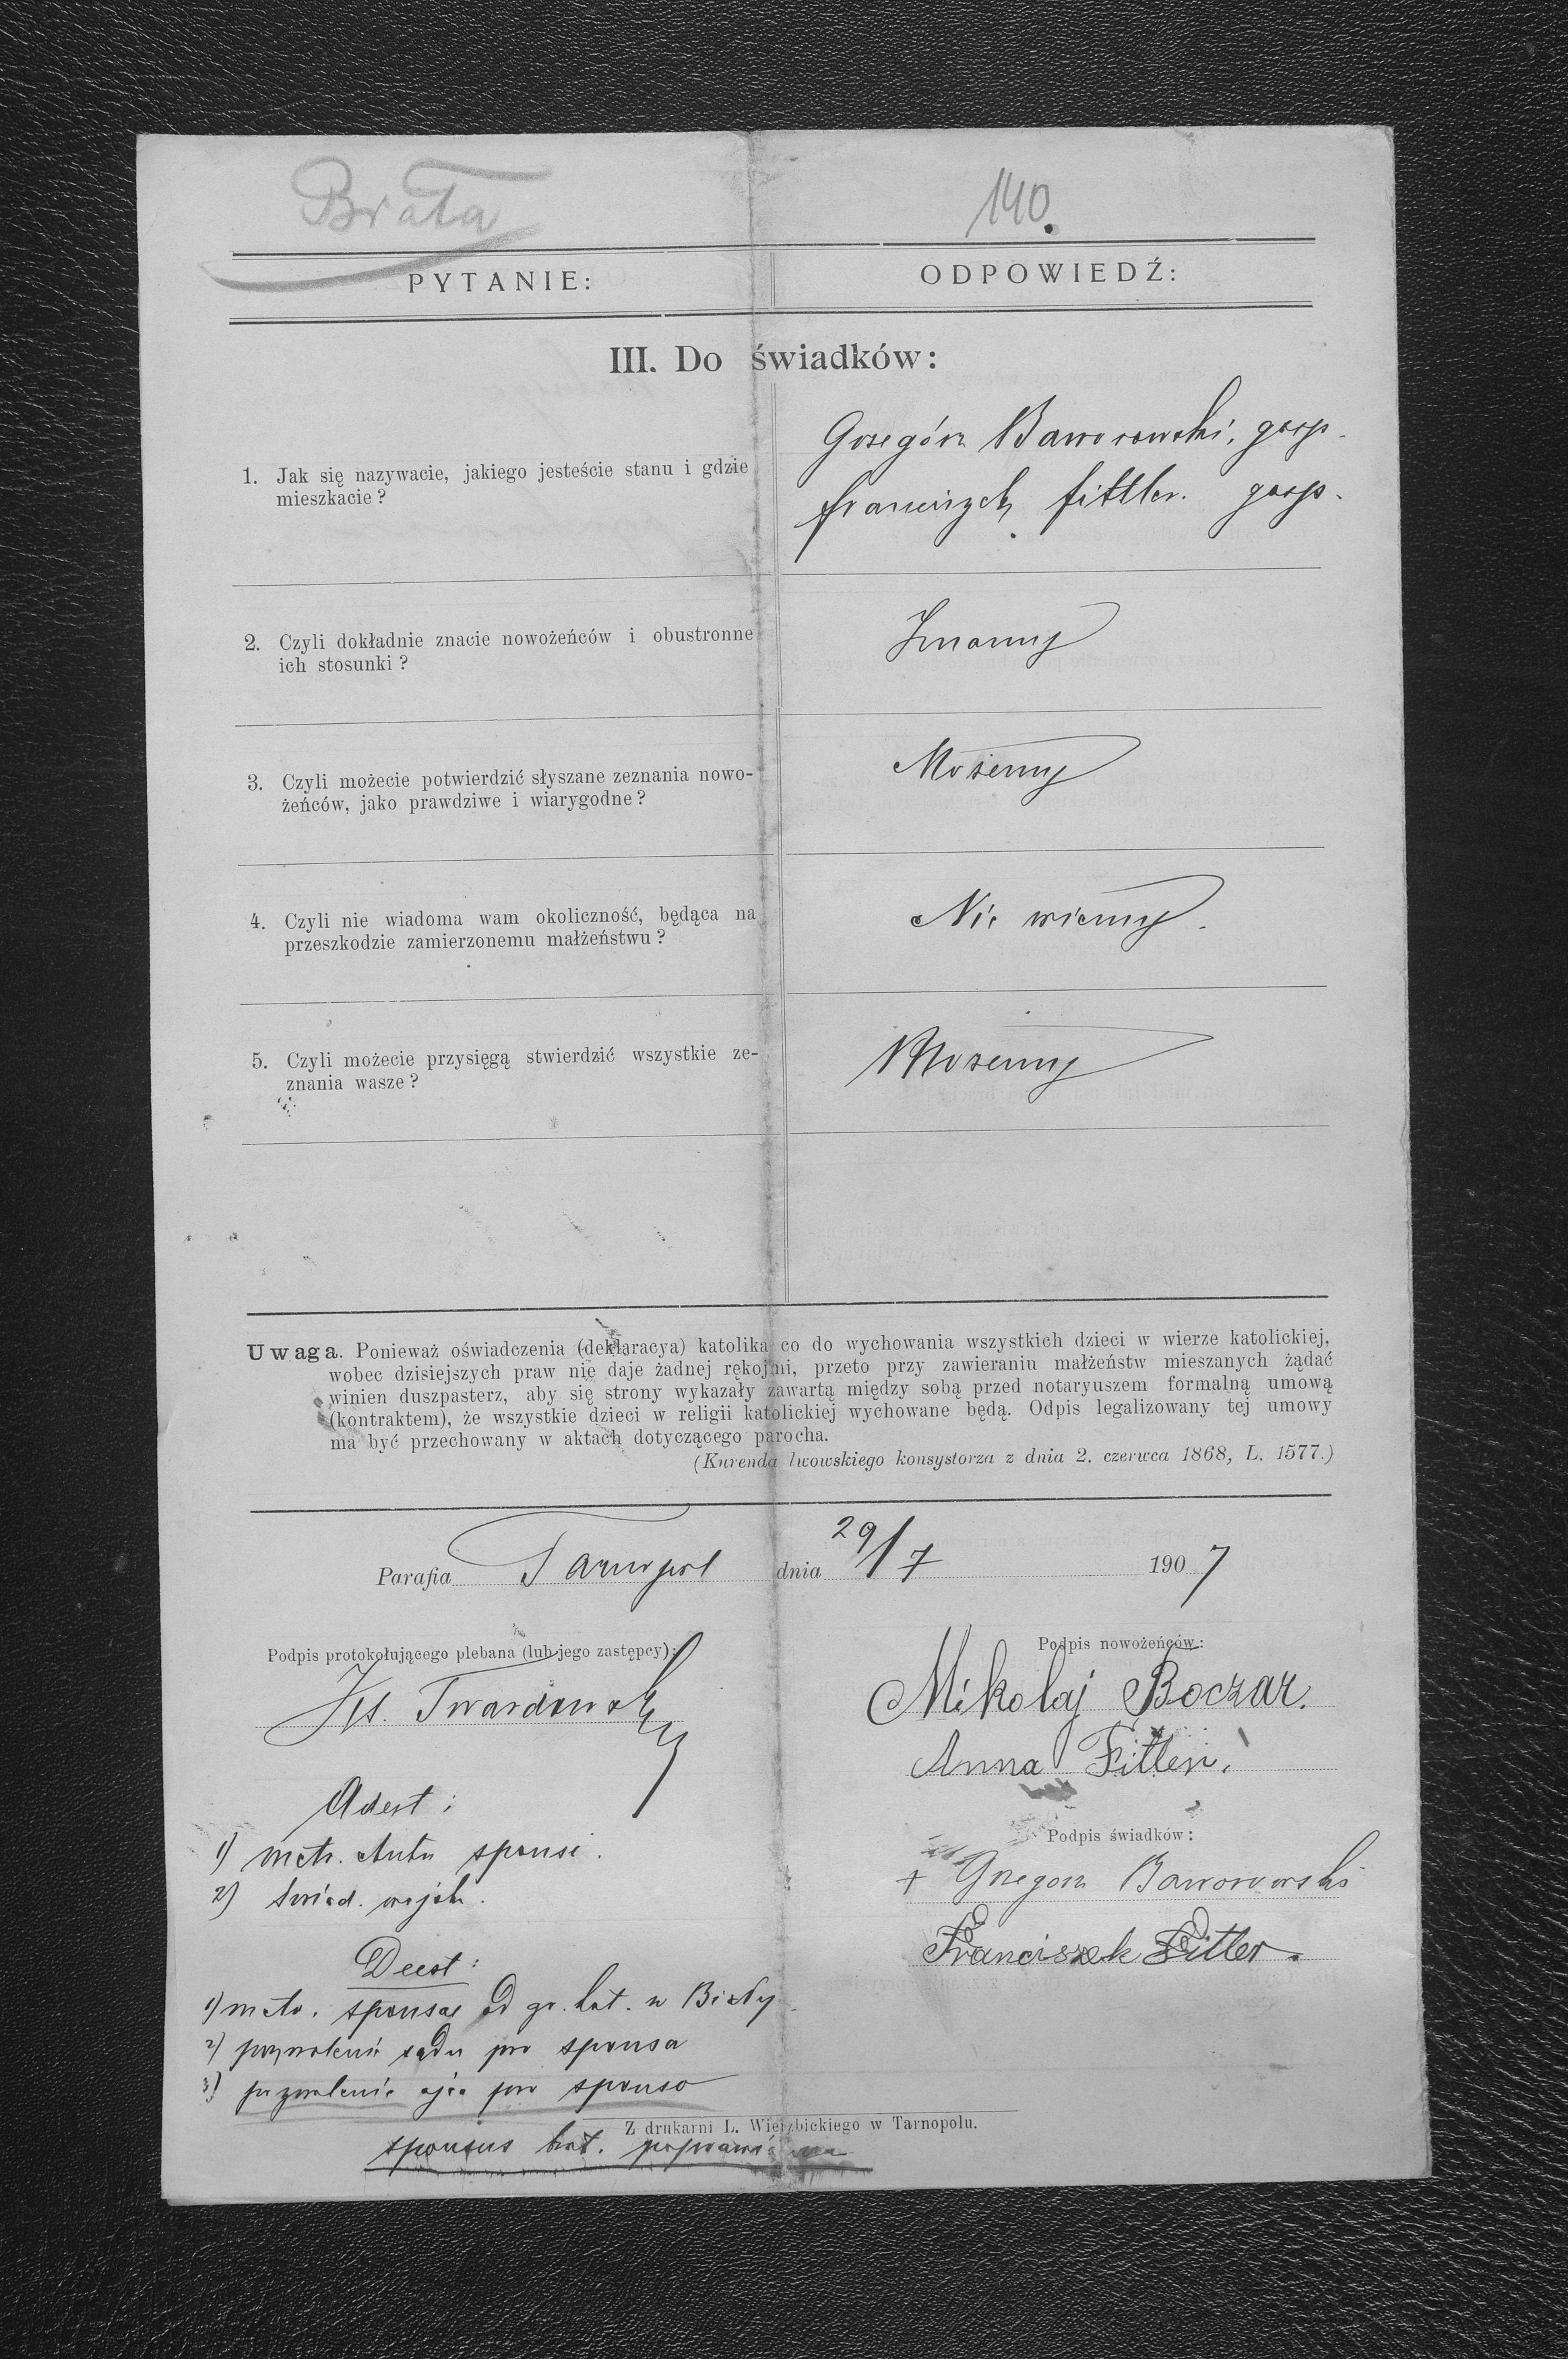 Brata
140.
PYTANIE:
ODPOWIEDŹ:
III. Do świadków:
1. Jak się nazywacie, jakiego jesteście stanu i gdzie
mieszkacie?
Grzegórz Baworowski, gosp.
franciszek fittler. gosp.
2. Czyli dokładnie znacie nowożeńców i obustronne
ich stosunki?
Znamy
3. Czyli możecie potwierdzić słyszane zeznania nowo-
żeńców, jako prawdziwe i wiarygodne?
Możemy
4. Czyli nie wiadoma wam okoliczność, będąca na
przeszkodzie zamierzonemu małżeństwu?
Nie wiemy.
5. Czyli możecie przysięgą stwierdzić wszystkie ze-
znania wasze?
Możemy
Uwaga. Ponieważ oświadczenia (deklaracya) katolika co do wychowania wszystkich dzieci w wierze katolickiej,
wobec dzisiejszych praw nie daje żadnej rękojmi, przeto przy zawieraniu małżeństw mieszanych żądać
winien duszpasterz, aby się strony wykazały zawartą między sobą przed notaryuszem formalną umową
(kontraktem), że wszystkie dzieci w religii katolickiej wychowane będą. Odpis legalizowany tej umowy
ma być przechowany w aktach dotyczącego parocha.
(Kurenda lwowskiego konsystorza z dnia 2. czerwca 1868, L. 1577.)
Parafia Tarnopol dnia 29/7 1907
Podpis protokołującego plebana (lub jego zastępcy):
Ks. Twardowski
Podpis nowożeńców:
Mikolaj Boczar.
Anna Fitler.
Podpis świadków:
+ Grzegorz Baworowski
Franciszek Fitler.
Adest:
1) metr. sponsi.
2) świad. wojsk.
Deest:
1) metr. sponsae od gr. kat. w Biały
2) pozwolenie sądu pro sponsa
3) pozwolenie ojca pro sponso
Z drukarni L. Wierzbickiego w Tarnopolu.
sponsus